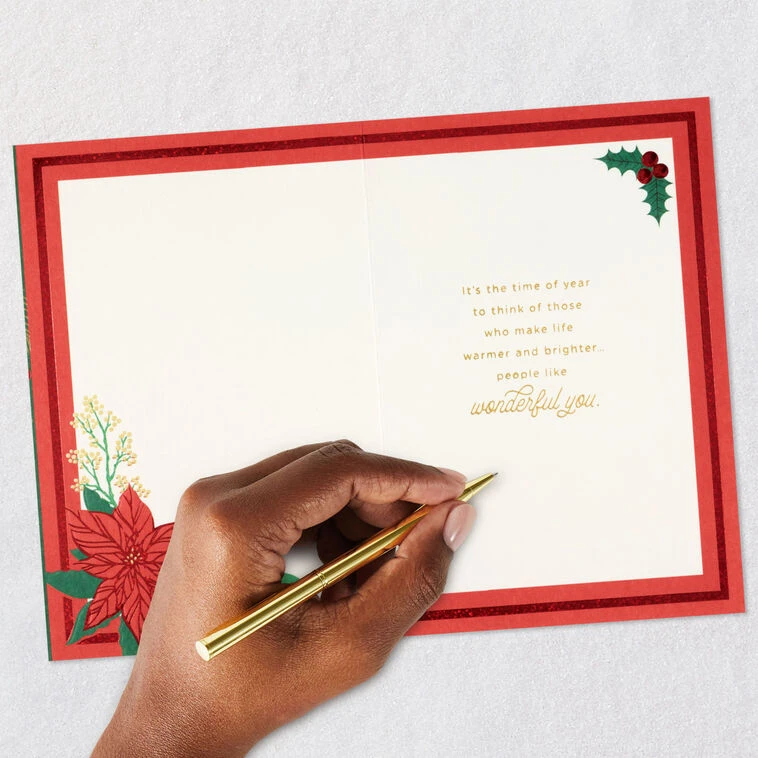 It's the time of year
to think of those
who make life
warmer and brighter...
people like
wonderful you.